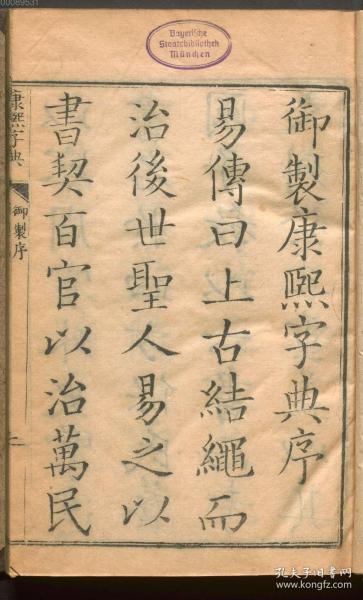 00089531
Bayerische
Staatsbibliothek
München
御製康熙字典序
易傳曰上古結繩而
治後世聖人易之以
書契百官以治萬民
康熙字典
御製序
一
孔夫子旧书网
kongfz.com